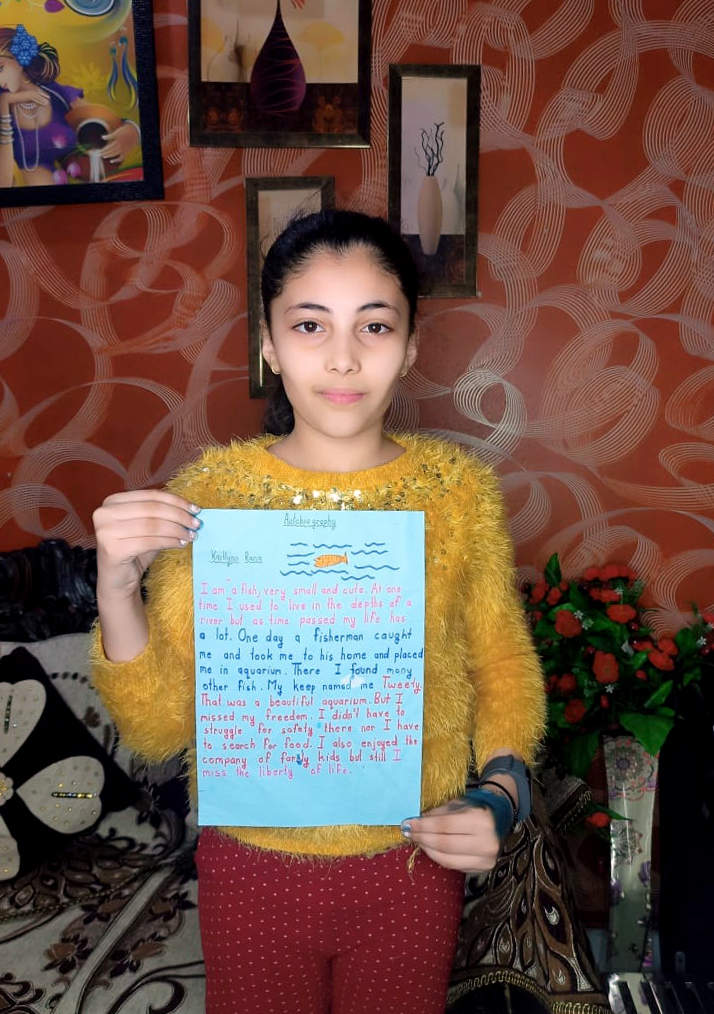 Autobiography
Kaitlynn Rana
I am a fish, very small and cute. At one
time I used to live in the depths of a
river but as time passed my life has
a lot. One day a fisherman caught
me and took me to his home and placed
me in aquarium. There I found many
other fish. My keep named me Tweety.
That was a beautiful aquarium. But I
missed my freedom. I didn't have to
struggle for safety there nor I have
to search for food. I also enjoyed the
company of kids but still I
miss the liberty of life.